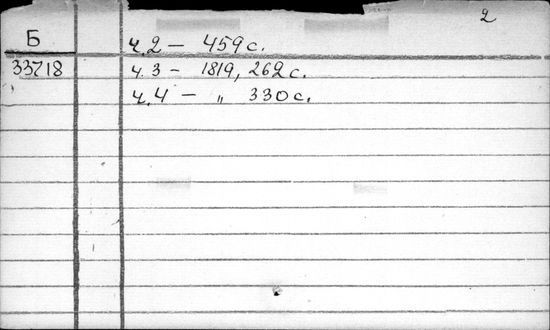 2
Б ч.2 — 459 с.
33718 ч.3 — 1819, 262 с.
ч.4 — „ 330 с.